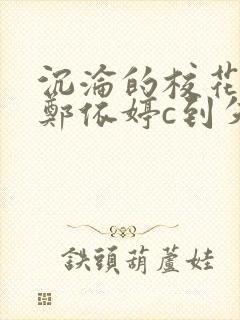 沉淪的校花
鄭依婷c到
鉄頭葫蘆娃